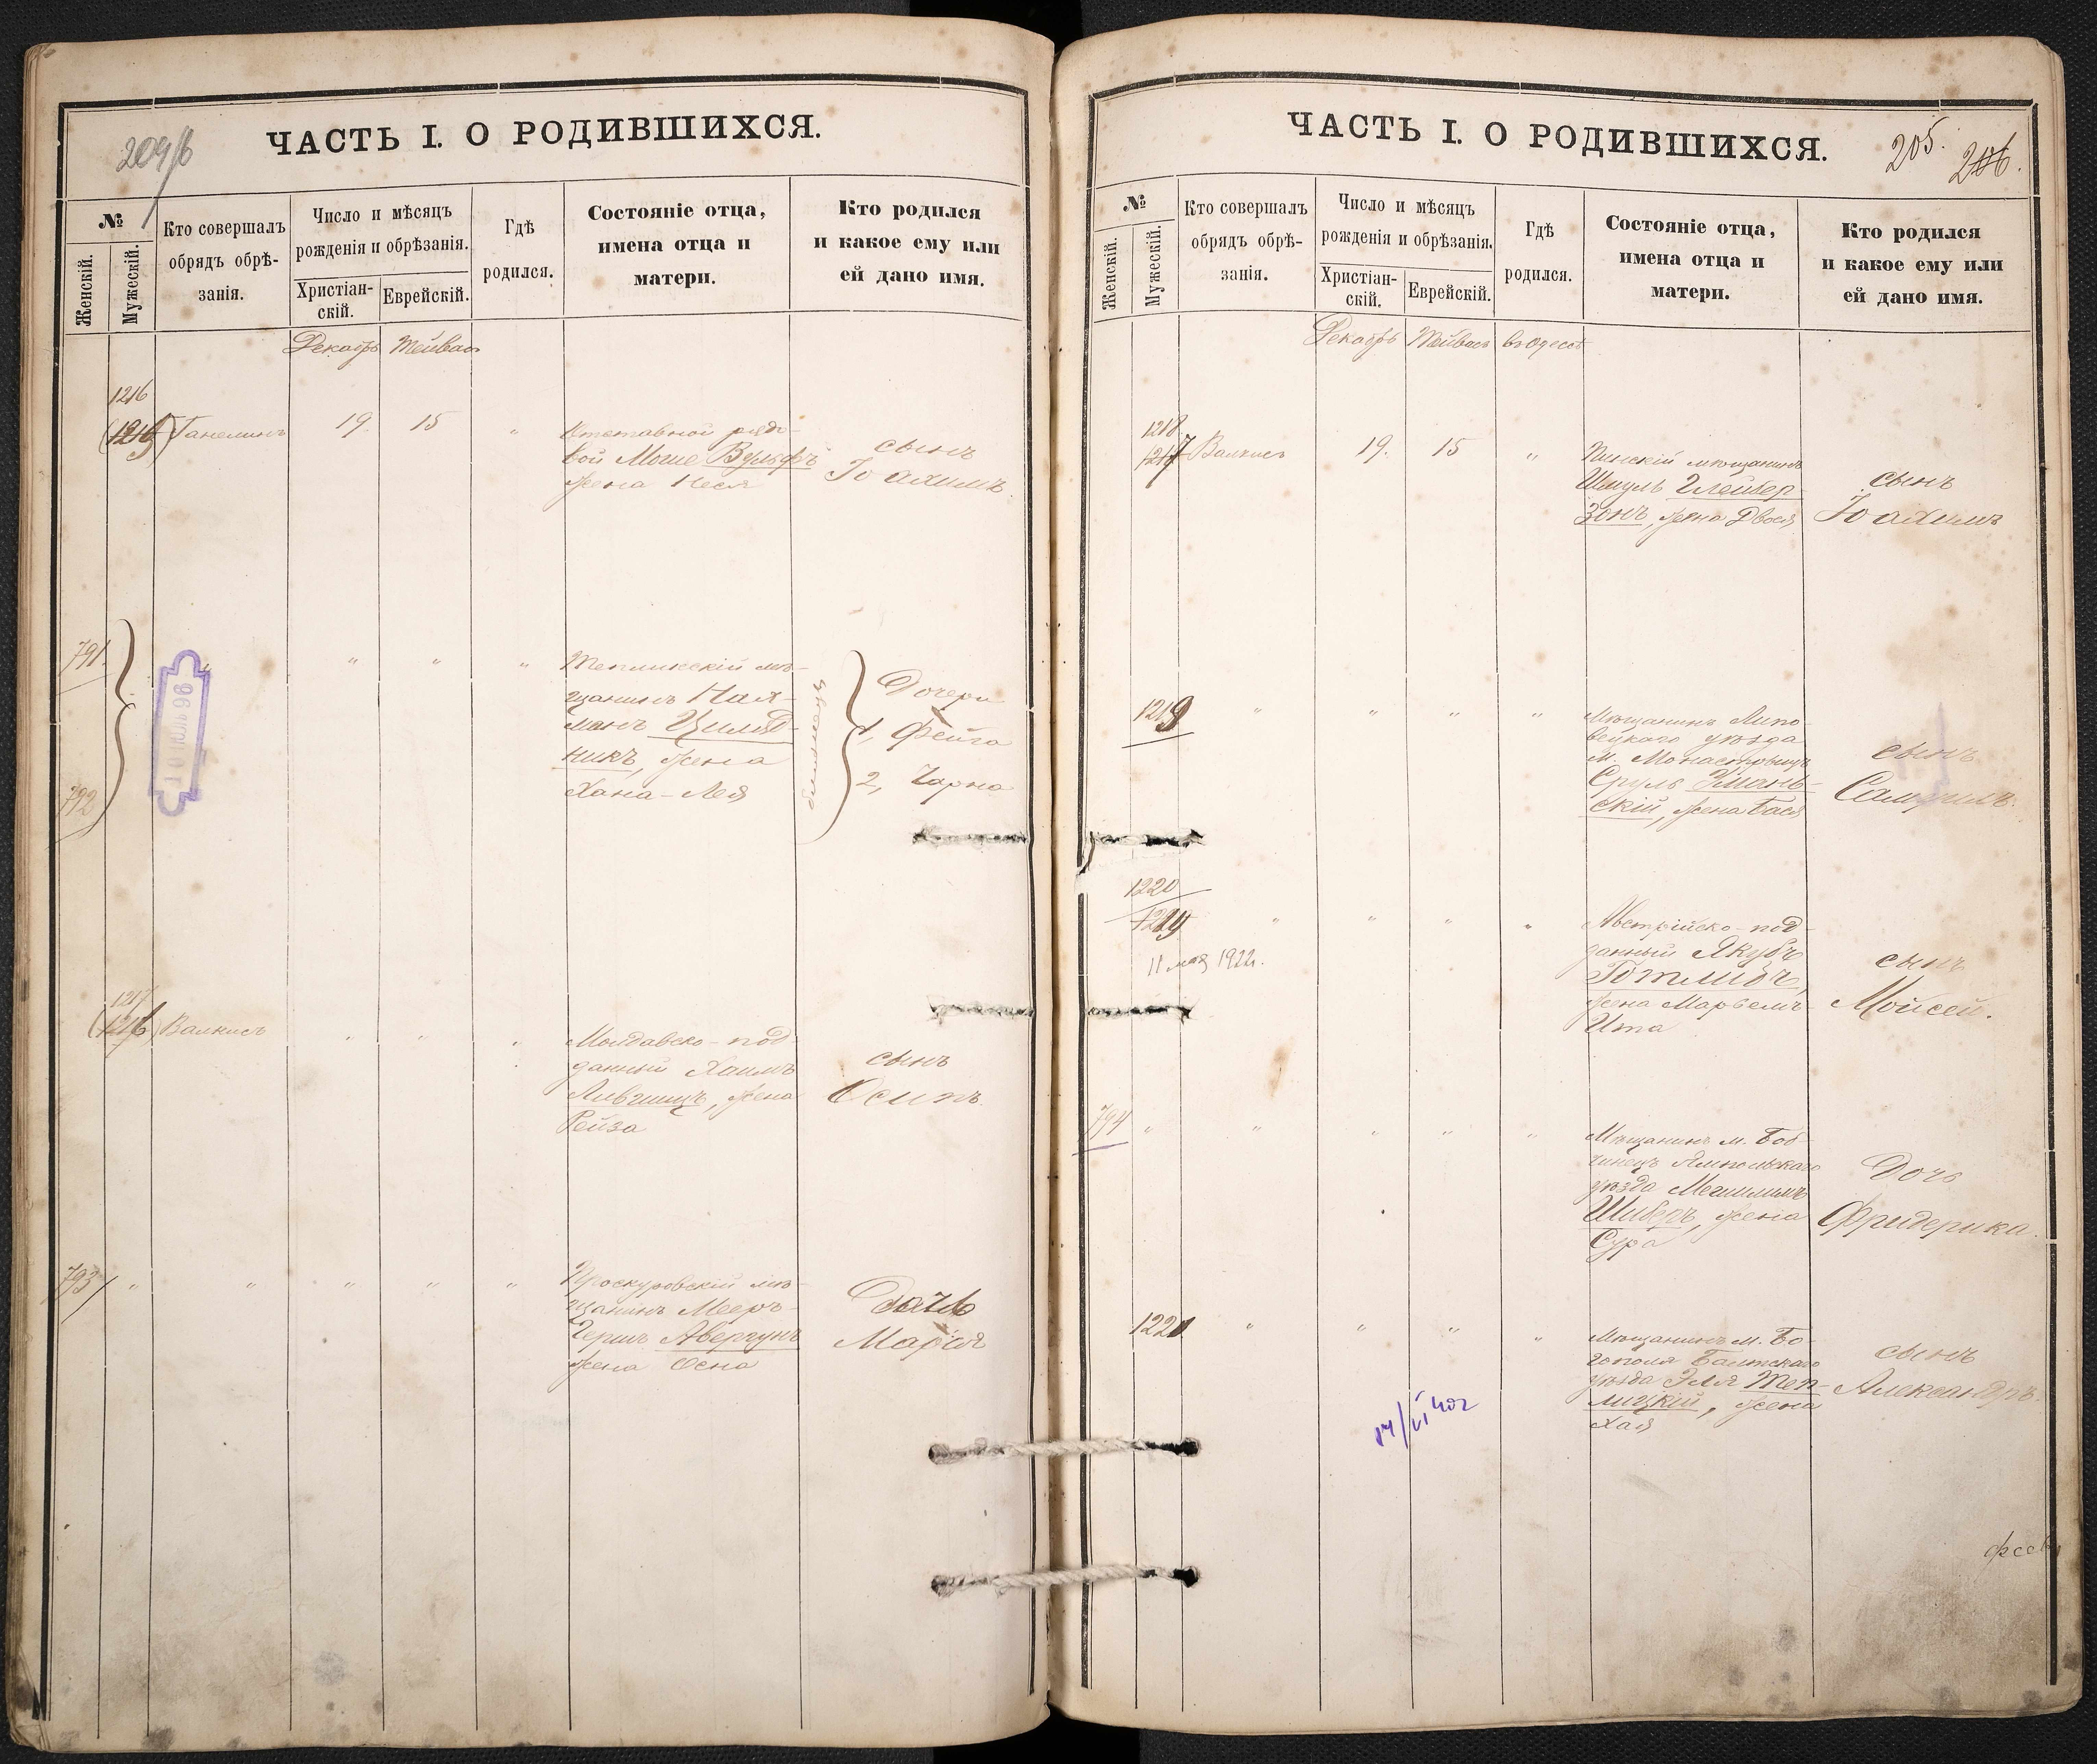 204/б
ЧАСТЬ I. О РОДИВШИХСЯ.
№
Женскій.
Мужескій.
Кто совершалъ
обрядъ обрѣ-
занія.
Число и мѣсяцъ
рожденія и обрѣзанія.
Христіан-
скій.
Еврейскій.
Гдѣ
родился.
Состояніе отца,
имена отца и
матери.
Кто родился
и какое ему или
ей дано имя.
Декабрь Тейвасъ
1216
Ганелинъ 19. 15 "
Отставной рядо-
вой Моше Вульфъ
жена Неся
сынъ
Іоахимъ
791.
792
" " " "
Тепликскій мѣ-
щанинъ Нах-
манъ
никъ, жена
Хана-Лея
близнецы
Дочери
1, Фейга
2, Чарна
1217
1216 Валкисъ " " "
Молдавско-под-
данный Хаимъ
Лившицъ, жена
Рейза
сынъ
Осипъ
793 " " " " "
Проскуровскій мѣ-
щанинъ Мееръ-
Гершъ Авергунъ
жена Осна
Дочь
Марія
ЧАСТЬ I. О РОДИВШИХСЯ.
205. 206.
№
Женскій.
Мужескій.
Кто совершалъ
обрядъ обрѣ-
занія.
Число и мѣсяцъ
рожденія и обрѣзанія.
Христіан-
скій.
Еврейскій.
Гдѣ
родился.
Состояніе отца,
имена отца и
матери.
Кто родился
и какое ему или
ей дано имя.
Декабрь Тейвасъ въ Одессѣ
1218
1217 Валкисъ 19. 15 "
Пинскій мѣщанинъ
Шмуль Глейбер-
зонъ, жена Двося
сынъ
Іоахимъ
1219 " " " "
Мѣщанинъ Липо-
вецкаго уѣзда
м. Монастырищъ
Сруль
скій, жена Бася
сынъ
Самуилъ.
1220
" " " "
11 мая 1922г.
Австрійско-под-
данный Якубъ
Готлибъ,
жена Марьемъ-
Ита
сынъ
Мойсей.
794 " " " " "
Мѣщанинъ м.
Ямпольскаго
уѣзда
Шиберъ, жена
Сура
Дочь
Фридерика.
1221 " " " "
Мѣщанинъ м. Бо-
гополя Балтскаго
уѣзда Эля Теп-
лицкій, жена
Хая
сынъ
Александръ.